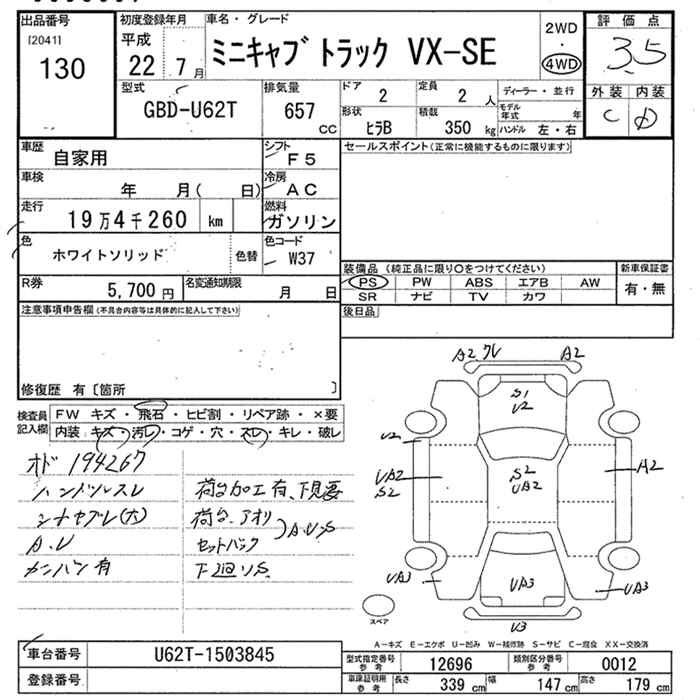 出品番号
[2041]
130
初度登録年月
平成
22 年 7 月
車名・グレード
ミニキャブ トラック VX-SE
2WD
・
4WD
評価点
3.5
外装 内装
C D
型式
GBD-U62T
排気量
657 cc
ドア
2
定員
2 人
形状
ヒラB
積載
350 kg
ディーラー・並行
モデル年式 年
ハンドル 左・右
車歴
自家用
シフト
F5
車検
年 月( 日)
冷房
AC
走行
19万4千260 km
燃料
ガソリン
色
ホワイトソリッド
色替
色コード
W37
R券
5,700 円
名変通知期限
月 日
セールスポイント(正常に機能するものに限ります)
装備品 (純正品に限り○をつけてください)
PS PW ABS エアB AW
SR ナビ TV カワ
新車保証書
有・無
後日品
注意事項申告欄(不具合内容等は具体的に記入して下さい)
修復歴 有〔箇所 〕
検査員記入欄
FW キズ・飛石・ヒビ割・リペア跡・×要
内装 キズ・汚レ・コゲ・穴・スレ・キレ・破レ
オド 194267
ハンドルスレ
シートヤブレ(大)
A.U
カンバン有
荷台加工有、下見要
荷台、アオリ
セットバック
A.U.S
下廻りS
A2 ワレ
A2
S1
V2
U2
UA2
S2
S2
UA2
A2
UA3
UA3
UA3
V3
スペア
A-キズ E-エクボ U-凹み W-補修跡 S-サビ C-腐食 XX-交換済
車台番号
U62T-1503845
登録番号
型式指定番号
参考
12696
類別区分番号
参考
0012
車庫証明用
参考
長さ 339 cm 幅 147 cm 高さ 179 cm